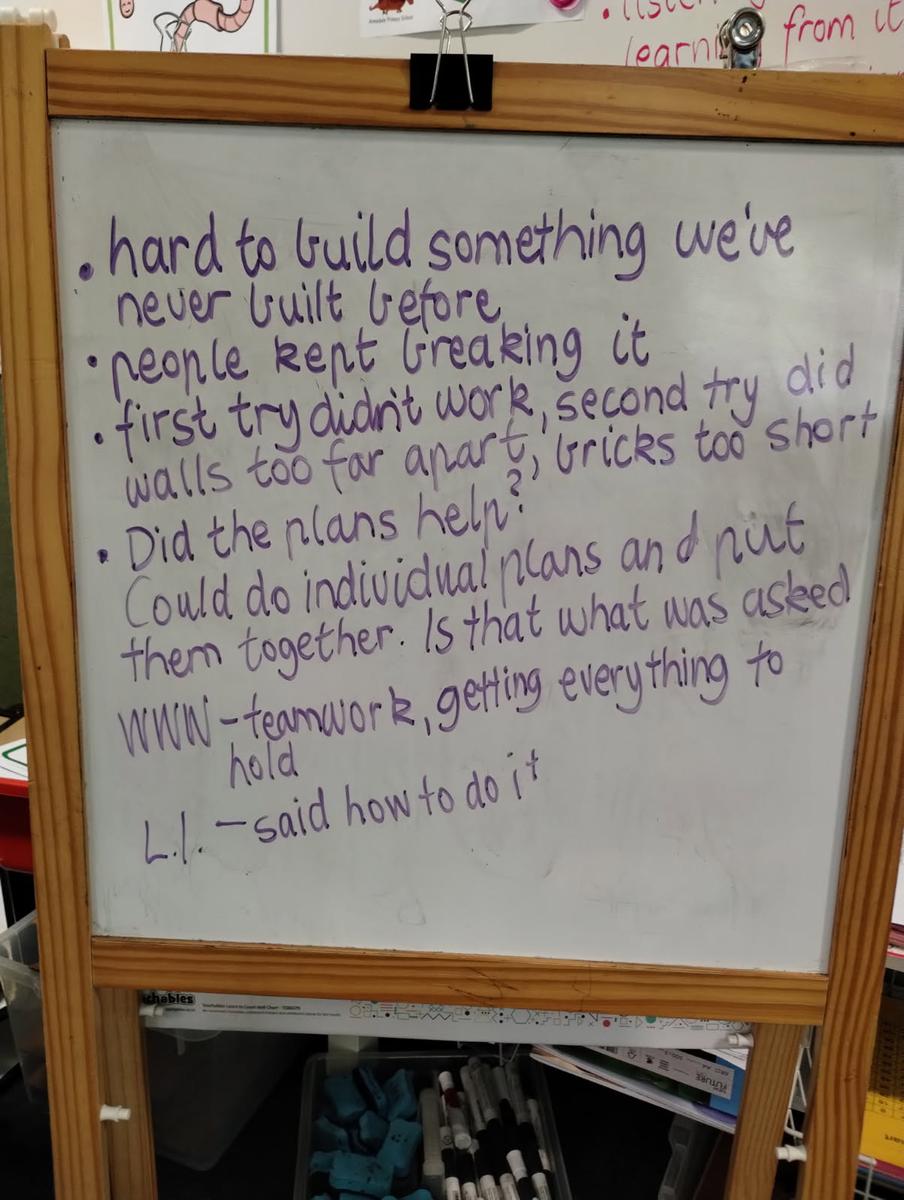 • listen
learning from it
Annadale Primary School
• hard to build something we've
never built before
• people kept breaking it
• first try didn't work, second try did
walls too far apart, bricks too short
• Did the plans help?
Could do individual plans and put
them together. Is that what was asked
WWW - teamwork, getting everything to
hold
L.I. - said how to do it
chables
FUTURE